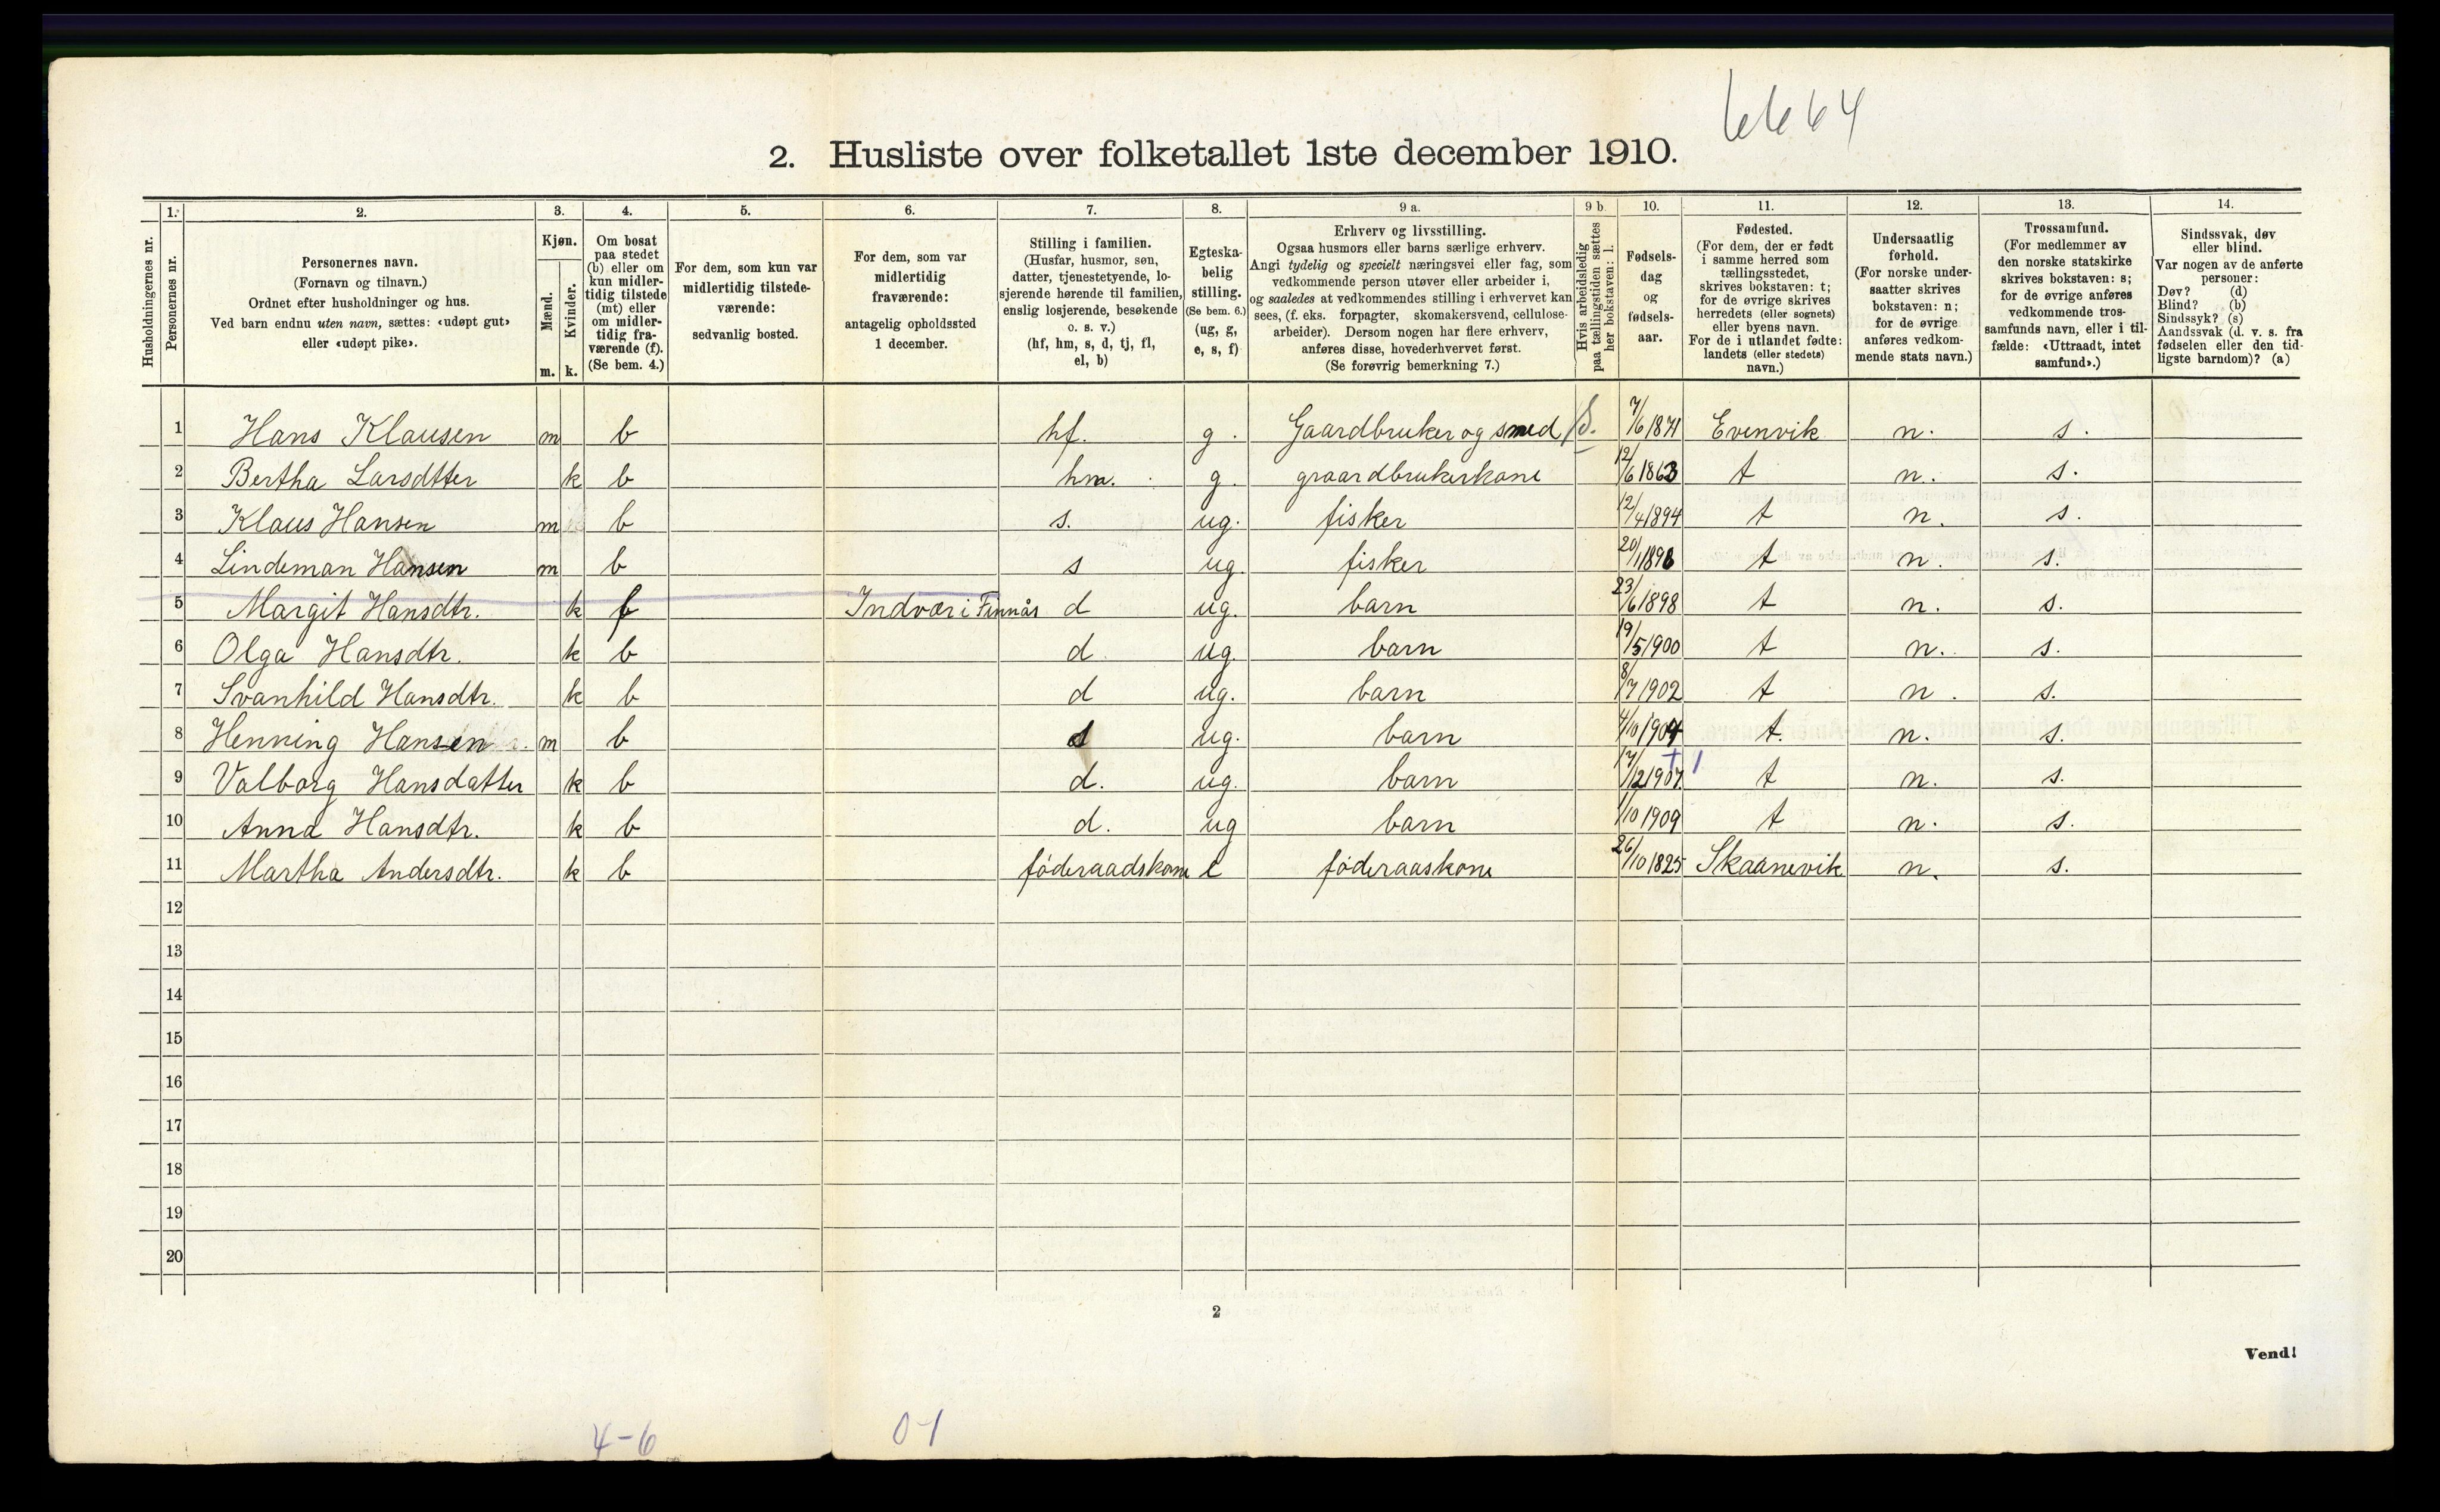 6664
2. Husliste over folketallet 1ste december 1910.
Husholdningernes nr.
1.
Personernes nr.
2.
Personernes navn.
(Fornavn og tilnavn.)
Ordnet efter husholdninger og hus.
Ved barn endnu uten navn, sættes: «udøpt gut»
eller «udøpt pike».
3.
Kjøn.
Mænd.
Kvinder.
m. k.
4.
Om bosat
paa stedet
(b) eller om
kun midler-
tidig tilstede
(mt) eller
om midler-
tidig fra-
værende (f).
(Se bem. 4.)
5.
For dem, som kun var
midlertidig tilstede-
værende:
sedvanlig bosted.
6.
For dem, som var
midlertidig
fraværende:
antagelig opholdssted
1 december.
7.
Stilling i familien.
(Husfar, husmor, søn,
datter, tjenestetyende, lo-
sjerende hørende til familien,
enslig losjerende, besøkende
o. s. v.)
(hf, hm, s, d, tj, fl,
el, b)
8.
Egteska-
belig
stilling.
(Se bem. 6.)
(ug, g,
e, s, f)
9 a.
Erhverv og livsstilling.
Ogsaa husmors eller barns særlige erhverv.
Angi tydelig og specielt næringsvei eller fag, som
vedkommende person utøver eller arbeider i,
og saaledes at vedkommendes stilling i erhvervet kan
sees, (f. eks. forpagter, skomakersvend, cellulose-
arbeider). Dersom nogen har flere erhverv,
anføres disse, hovederhvervet først.
(Se forøvrig bemerkning 7.)
9 b.
Hvis arbeidsledig
paa tællingstiden sættes
her bokstaven: l.
10.
Fødsels-
dag
og
fødsels-
aar.
11.
Fødested.
(For dem, der er født
i samme herred som
tællingsstedet,
skrives bokstaven: t;
for de øvrige skrives
herredets (eller sognets)
eller byens navn.
For de i utlandet fødte:
landets (eller stedets)
navn.)
12.
Undersaatlig
forhold.
(For norske under-
saatter skrives
bokstaven: n;
for de øvrige
anføres vedkom-
mende stats navn.)
13.
Trossamfund.
(For medlemmer av
den norske statskirke
skrives bokstaven: s;
for de øvrige anføres
vedkommende tros-
samfunds navn, eller i til-
fælde: «Uttraadt, intet
samfund».)
14.
Sindssvak, døv
eller blind.
Var nogen av de anførte
personer:
Døv? (d)
Blind? (b)
Sindssyk? (s)
Aandssvak (d. v. s. fra
fødselen eller den tid-
ligste barndom)? (a)
1 Hans Klausen m b hf. g. Gaardbruker og smed 7/6 1871 Evenvik n. s.
2 Bertha Larsdtter k b hm. g. graardbrukerkone 12/6 1863 t n. s.
3 Klaus Hansen m b s. ug. fisker 12/4 1894 t n. s.
4 Lindeman Hansen m b s ug. fisker 20/1 1896 t n. s.
5 Margit Hansdtr. k f Indvær i Finnås d ug. barn 23/6 1898 t n. s.
6 Olga Hansdtr. k b d ug. barn 19/5 1900 t n. s.
7 Svanhild Hansdtr. k b d ug. barn 8/7 1902 t n. s.
8 Henning Hansen m b s ug. barn 4/10 1904 t. n. s.
9 Valborg Hansdatter k b d. ug. barn 17/12 1907. t n. s.
10 Anna Hansdtr. k b d. ug barn 1/10 1909 t n. s.
11 Martha Andersdtr. k b føderaadskone e føderaaskone 26/10 1825 Skaanevik n. s.
12
13
14
15
16
17
18
19
20
2
Vend!
4-6
0-1